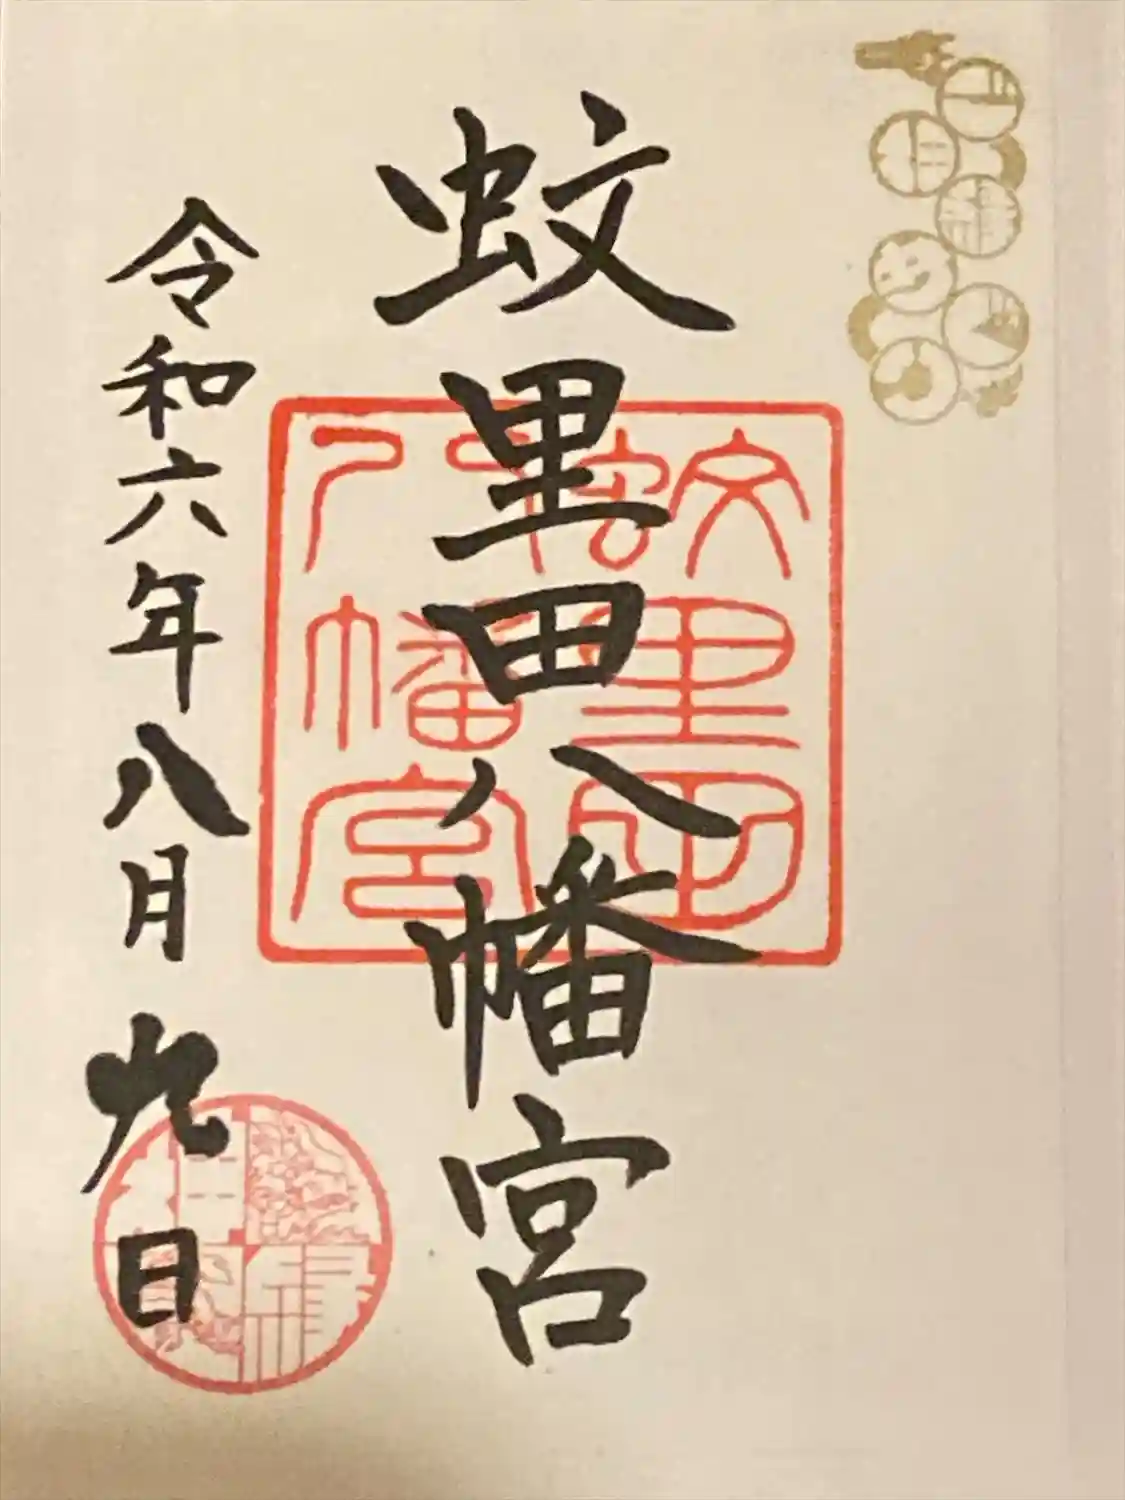 蚊里田八幡宮
令和六年八月九日
蚊里田
八幡宮